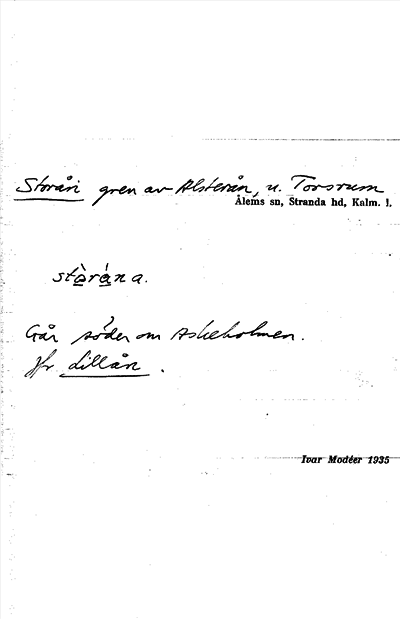 Storån gren av Alsterån, u. Torsrum
Ålems sn, Stranda hd, Kalm. l.
stòrána.
Går söder om Askeholmen.
Jfr Lillån.
Ivar Modéer 1935